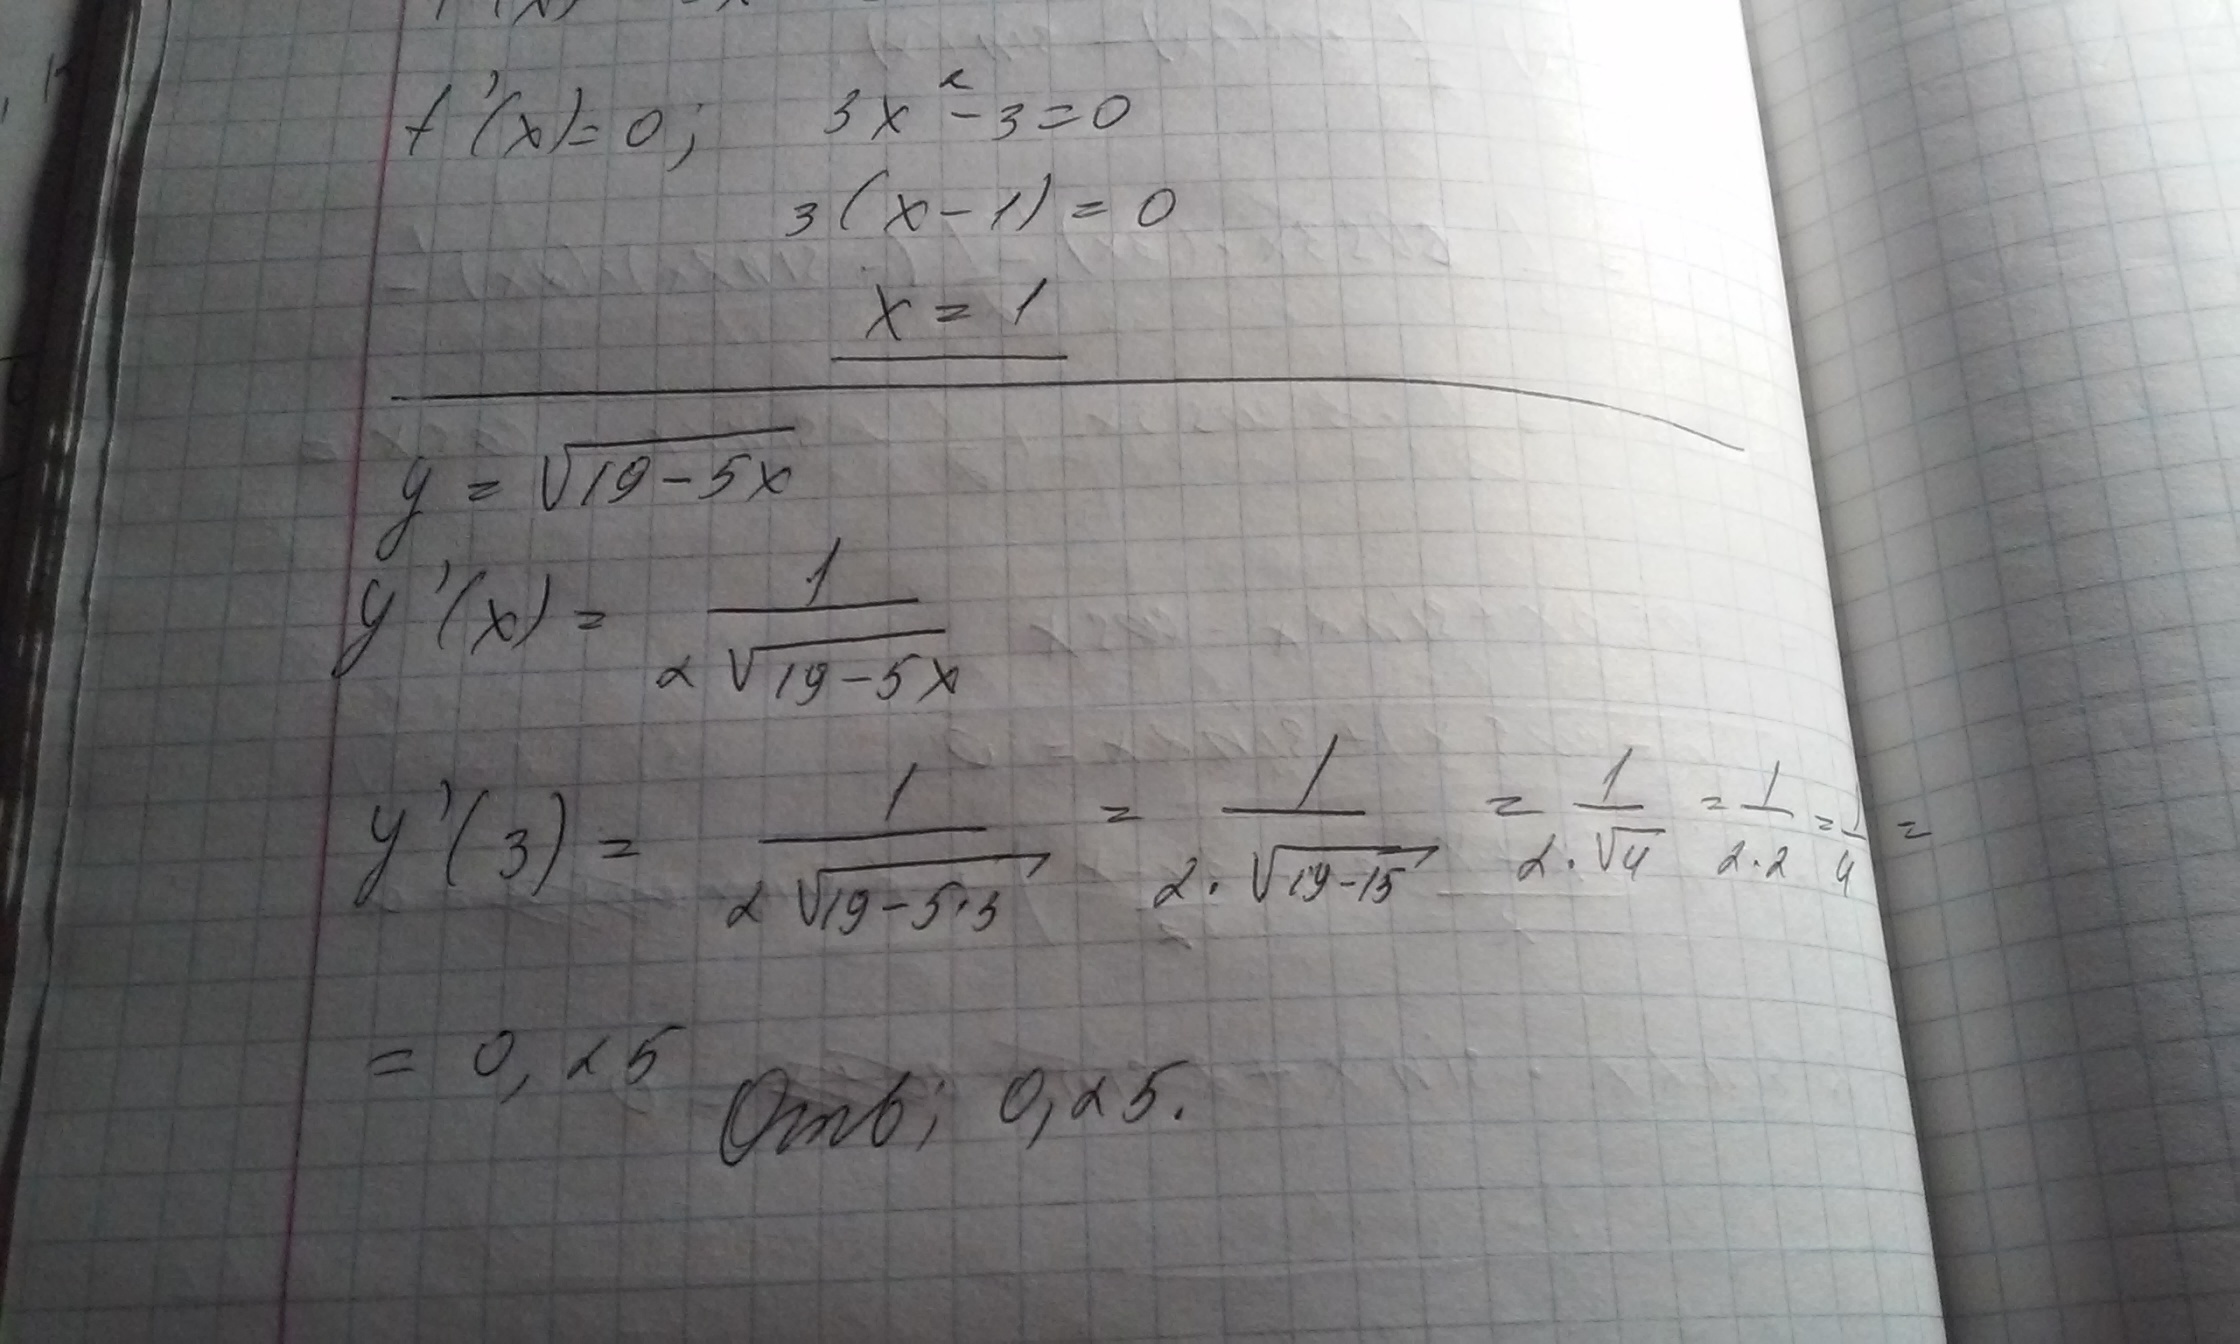 f'(x)=0; 3x²-3=0
3(x-1)=0
x=1
y=√(19-5x)
y'(x)=1/(2√(19-5x))
y'(3)=1/(2√(19-5·3))=1/(2·√(19-15))=1/(2·√4)=1/(2·2)=1/4=
=0,25 Отв; 0,25.